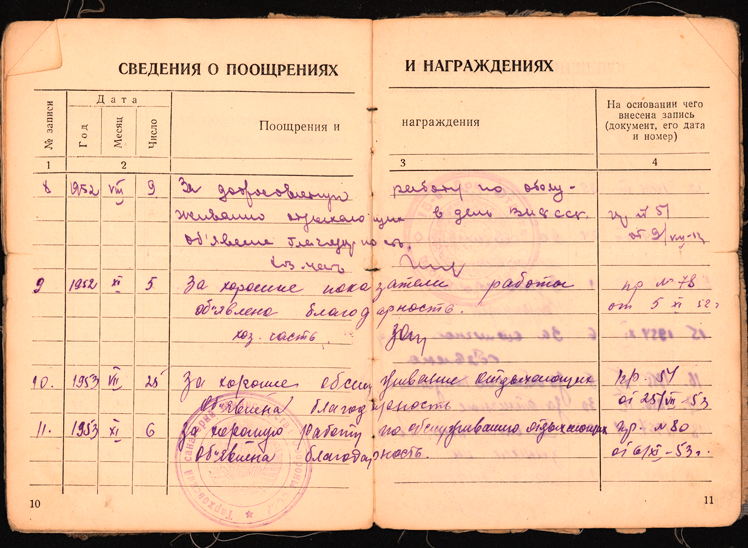 СВЕДЕНИЯ О ПООЩРЕНИЯХ И НАГРАЖДЕНИЯХ
№ записи
Дата
Год
Месяц
Число
Поощрения и награждения
На основании чего
внесена запись
(документ, его дата
и номер)
1 2 3 4
8 1952 VIII 9 За добросовестную работу по обслу-
живанию отдыхающих в день
объявлена благодарность. пр № 51
от 9/VIII-52
9 1952 XI 5 За хорошие показатели работы пр № 78
объявлена благодарность. от 5 XI 52 г.
хоз. часть
10. 1953 VII 25 За хорошие обслуживание отдыхающих пр. 57
объявлена благодарность от 25/VII-53
11. 1953 XI 6 За хорошую работу по обслуживанию отдыхающих пр. № 80
объявлена благодарность. от 6/XI-53 г.
10
11